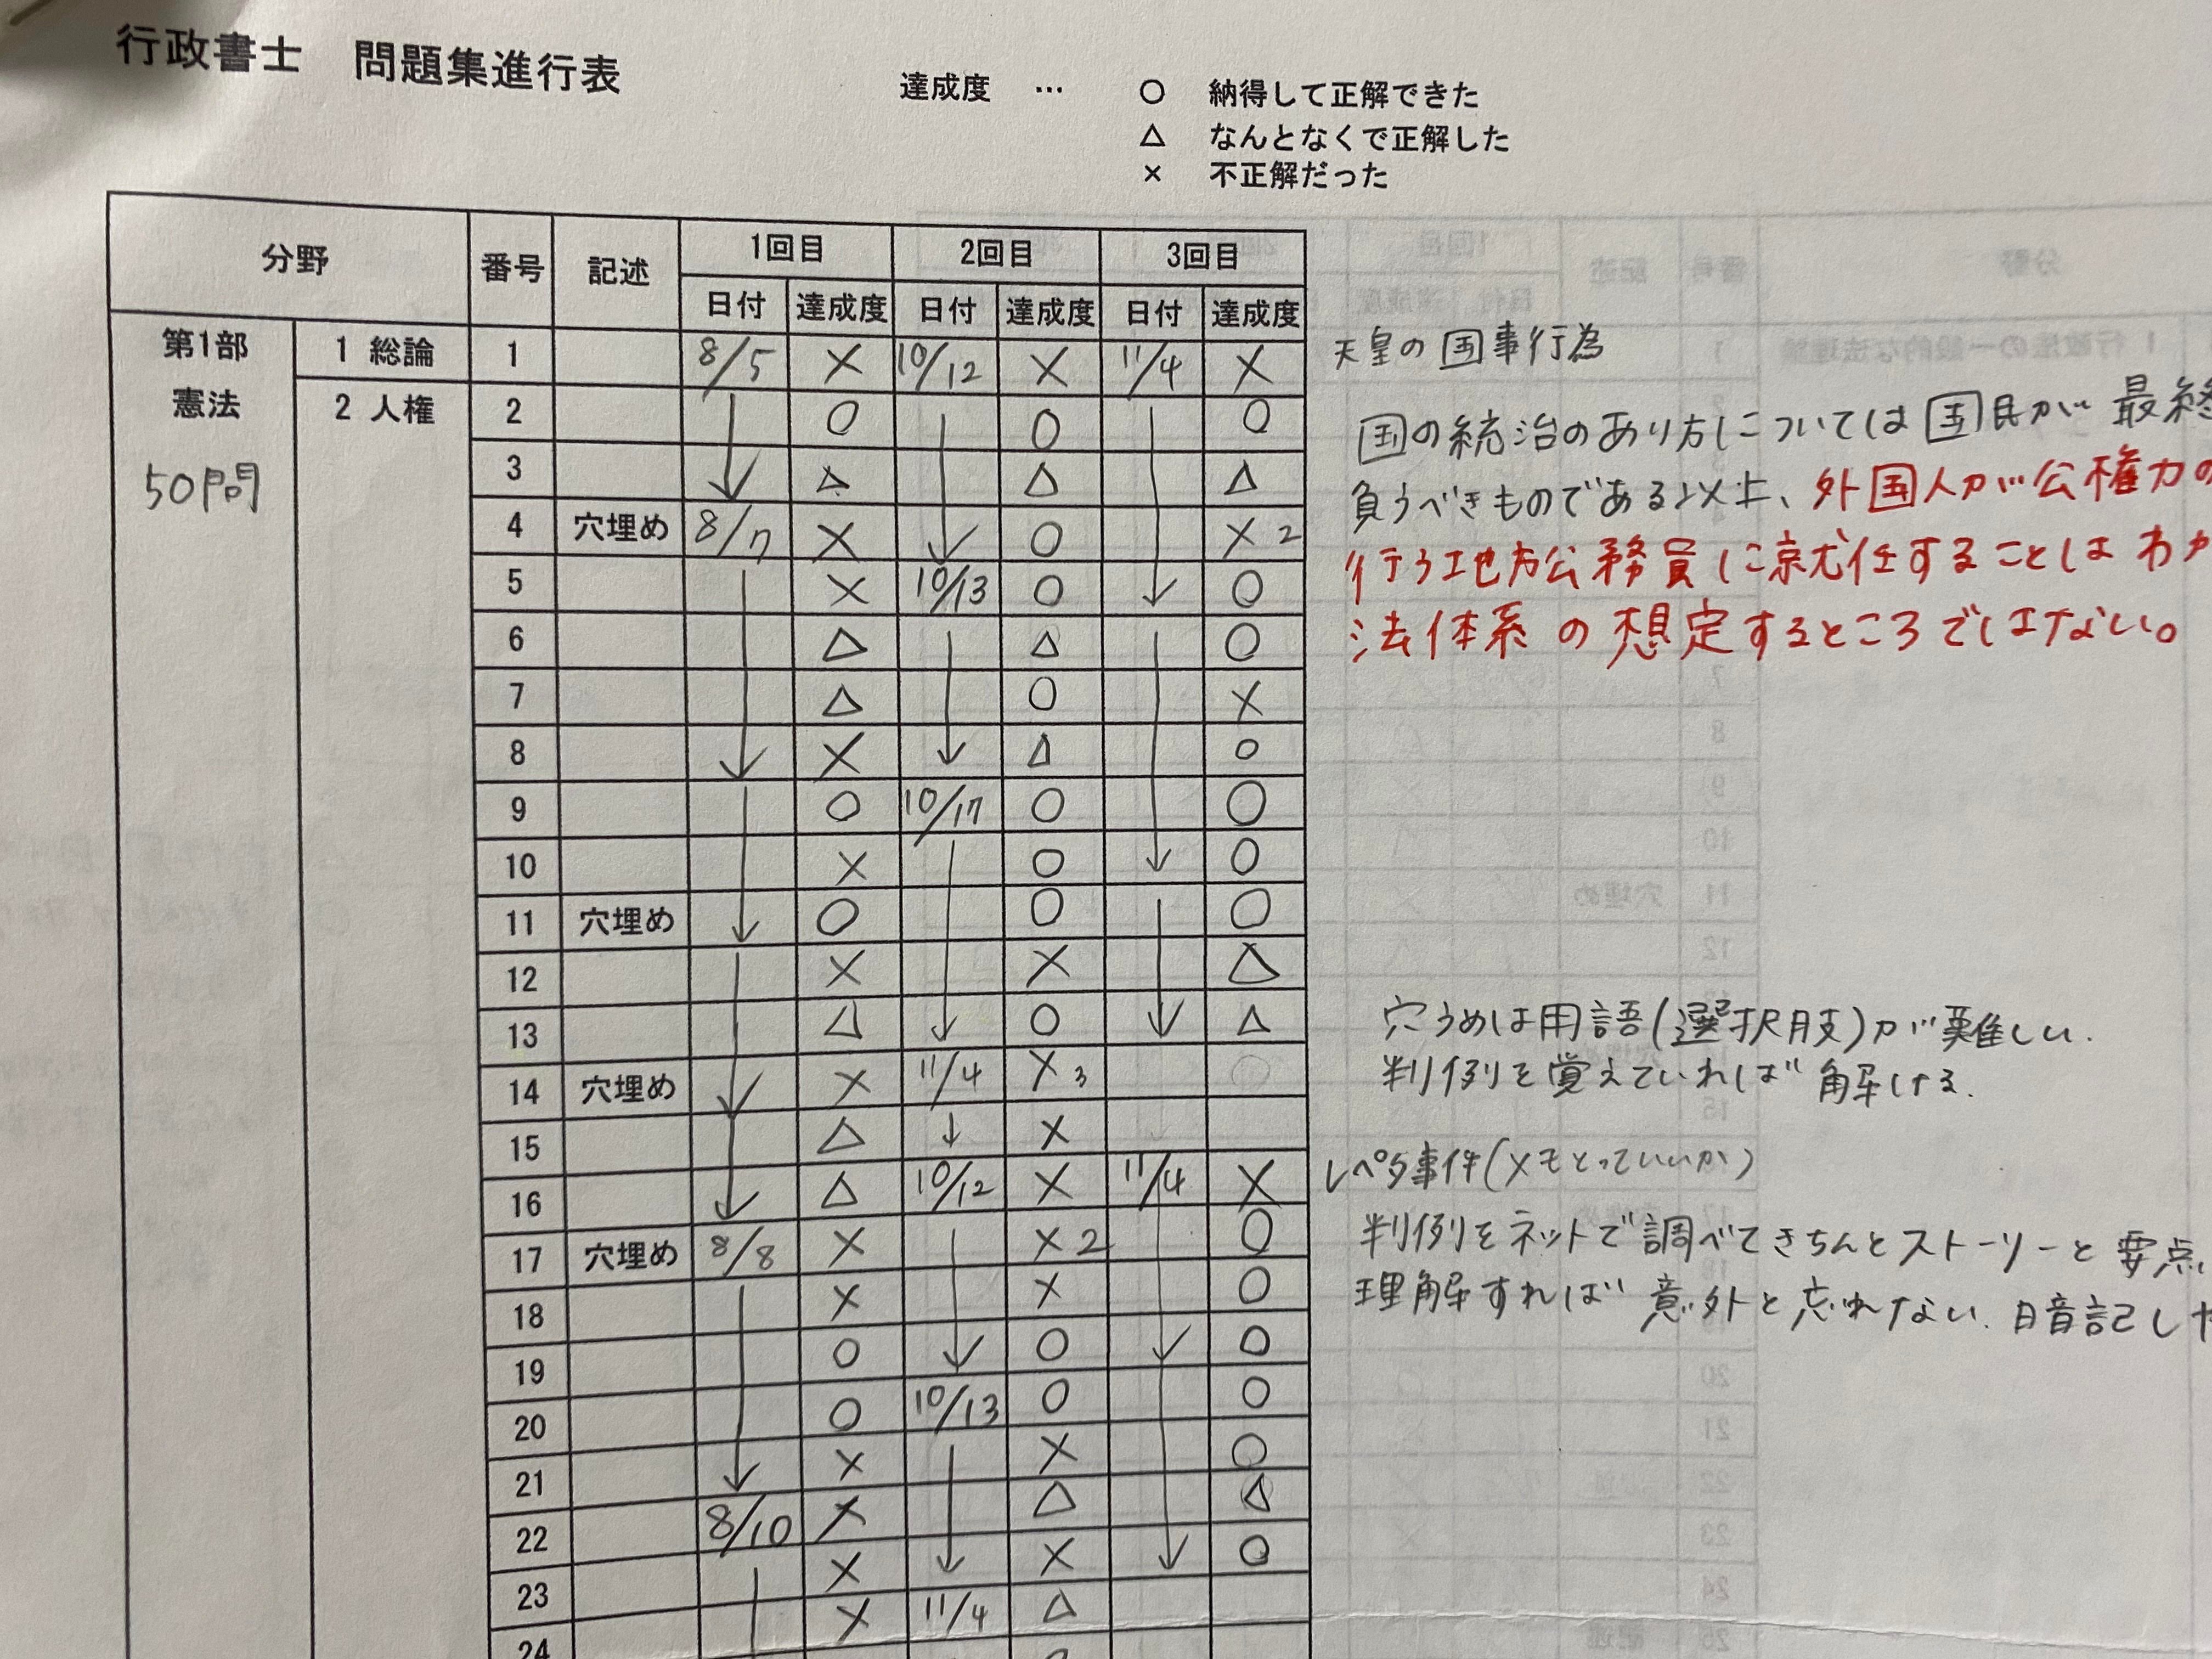 行政書士 問題集進行表
達成度 … ○ 納得して正解できた
△ なんとなくで正解した
× 不正解だった
分野 番号 記述 1回目 2回目 3回目
日付 達成度 日付 達成度 日付 達成度
第1部 憲法 50問
1 総論 1 8/5 × 10/12 × 11/4 × 天皇の国事行為
2 人権 2 ↓ ○ ○ ○
3 △ △ △
4 穴埋め 8/7 × ↓ ○ × 2
5 × 10/13 ○ ↓ ○
6 △ △ ○
7 △ ○ ×
8 ↓ × ↓ △ ○
9 ○ 10/17 ○ ○
10 × ○ ↓ ○
11 穴埋め ↓ ○ ○ ○
12 × × △
13 △ ↓ ○ ↓ △
14 穴埋め ↓ × 11/4 × 3
15 △ ↓ ×
16 ↓ △ 10/12 × 11/4 ×
17 穴埋め 8/8 × × 2 ○
18 × × ○
19 ○ ↓ ○ ↓ ○
20 ○ 10/13 ○ ○
21 ↓ × × ○
22 8/10 × △ △
23 × ↓ × ↓ ○
24 × 11/4 △
国の統治のあり方については国民が最終
負うべきものである以上、外国人が公権力の
行う地方公務員に就任することはわが
法体系の想定するところではない。
穴うめは用語(選択肢)が難しい.
判例を覚えていれば解ける.
レペタ事件(メモとっていいか)
判例をネットで調べてきちんとストーリーと要点
理解すれば意外と忘れない. 暗記し